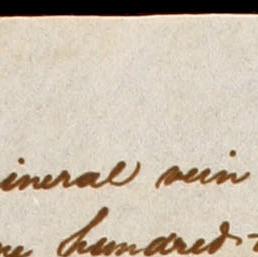 ineral vein
hundred